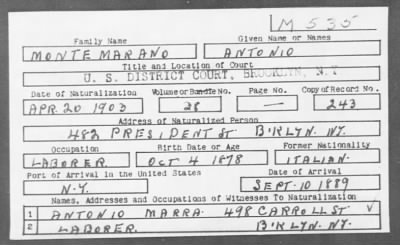 M 535
Family Name Given Name or Names
MONTE MARANO ANTONIO
Title and Location of Court
U. S. DISTRICT COURT, BROOKLYN, N.Y
Date of Naturalization Volume or Bundle No. Page No. Copy of Record No.
APR. 20 1903 28 — 243
Address of Naturalized Person
482 PRESIDENT ST B'KLYN. NY.
Occupation Birth Date or Age Former Nationality
LABORER. OCT 4 1878 ITALIAN.
Port of Arrival in the United States Date of Arrival
N.Y. SEPT. 10 1889
Names, Addresses and Occupations of Witnesses To Naturalization
1 ANTONIO MARRA. 498 CARROLL ST V
2 LABORER. B'KLYN. NY.